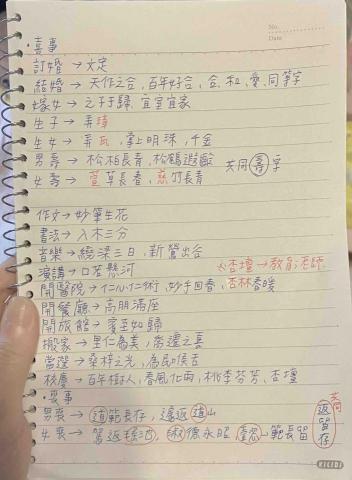 No.
Date
·喜事
訂婚→文定
結婚→天作之合,百年好合,合、和、愛、同等字
嫁女→之子于歸,宜室宜家
生子→弄璋
生女→弄瓦,掌上明珠,千金
男壽→松柏長青,松鶴遐齡 共同(壽)字
女壽→萱草長春,慈竹長青
作文→妙筆生花
書法→入木三分
音樂→繞梁三日,新鶯出谷
演講→口若懸河 杏壇→教育,老師
開醫院→仁心仁術,妙手回春,杏林春暖
開餐廳→高朋滿座
開旅館→賓至如歸
搬家→里仁為美,喬遷之喜
當選→桑梓之光,為民喉舌
校慶→百年樹人,春風化雨,桃李芬芳、杏壇
·喪事 共同
男喪→道範長存,返道山 返留存
女喪→駕返瑤池,淑德永昭,範長留